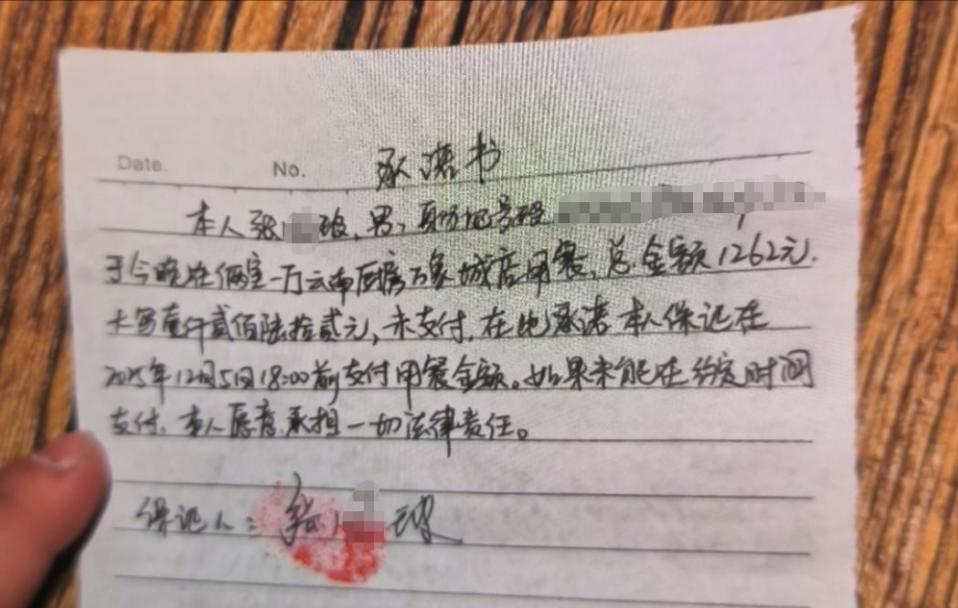 Date. No. 承诺书
本人张 波,男,身份证号码
于今晚在俩室一厅云南厨房万象城店用餐,总金额1262元.
大写壹仟贰佰陆拾贰元,未支付,在此承诺本人保证在
2025年12月5日18:00前支付用餐金额。如果未能在约定时间
支付,本人愿意承担一切法律责任。
保证人:张 波